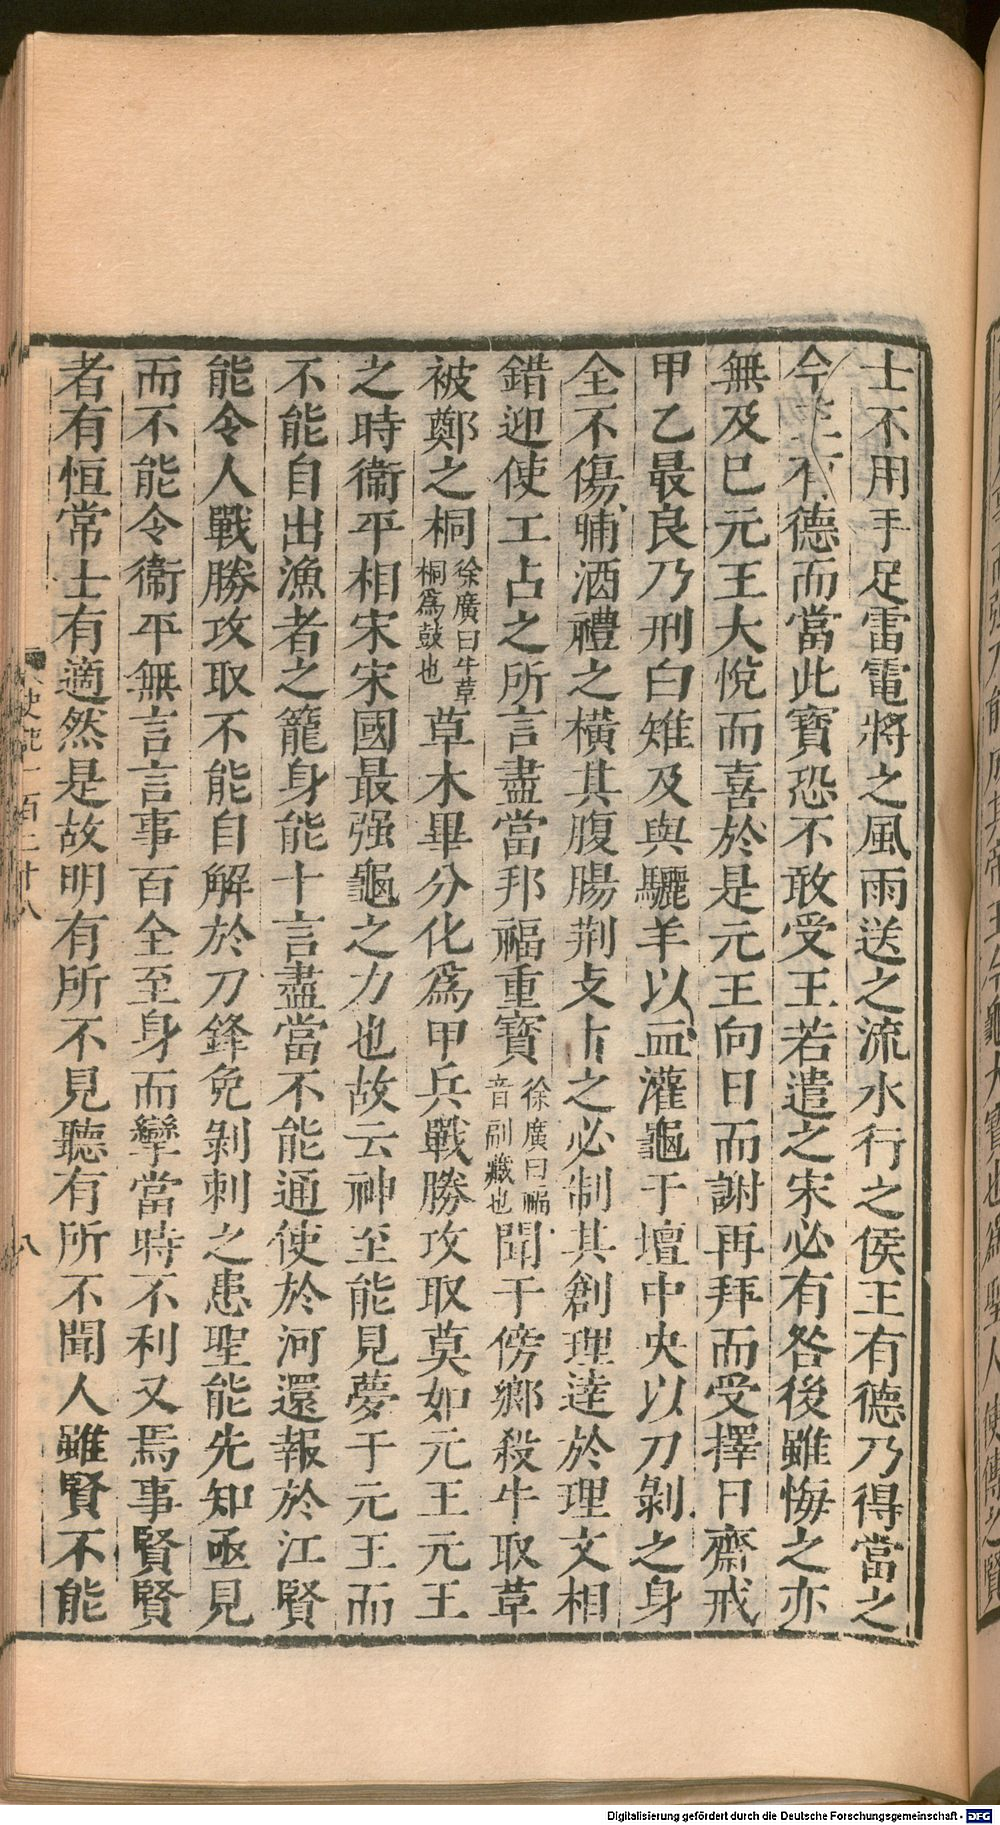 士不用手足雷電將之風雨送之流水行之侯王有德乃得當之
今 有德而當此寶恐不敢受王若遣之宋必有咎後雖悔之亦
無及巳元王大悅而喜於是元王向日而謝再拜而受擇日齋戒
甲乙最良乃刑白雉及與驪羊以血灌龜于壇中央以刀剝之身
全不傷脯酒禮之橫其腹腸荆支卜之必制其創理達於理文相
錯迎使工占之所言盡當邦福重寶徐廣曰福音副藏也聞于傍鄉殺牛取革
被鄭之桐徐廣曰牛革桐爲鼓也草木畢分化爲甲兵戰勝攻取莫如元王元王
之時衞平相宋宋國最强龜之力也故云神至能見夢于元王而
不能自出漁者之籠身能十言盡當不能通使於河還報於江賢
能令人戰勝攻取不能自解於刀鋒免剝刺之患聖能先知亟見
而不能令衞平無言言事百全至身而攣當時不利又焉事賢賢
者有恒常士有適然是故明有所不見聽有所不聞人雖賢不能
史記一百二十八
八
Digitalisierung gefördert durch die Deutsche Forschungsgemeinschaft - DFG